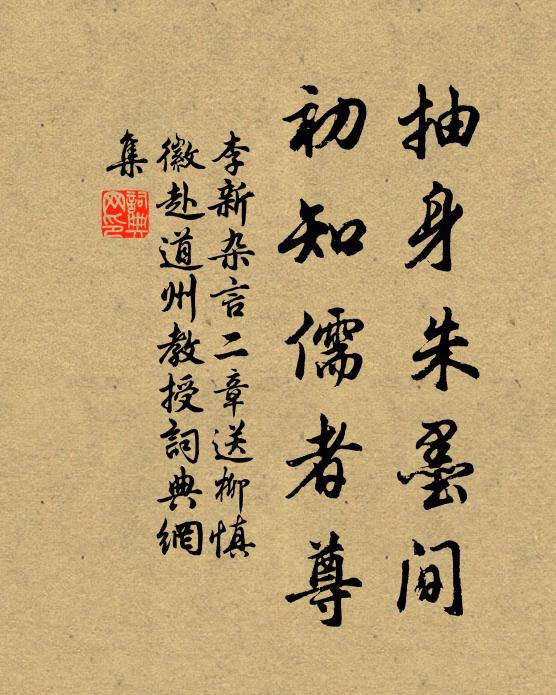 抽身朱墨间
初知儒者尊
李新杂言二章送柳慎
徽赴道州教授詞典網
集
詞典
网印